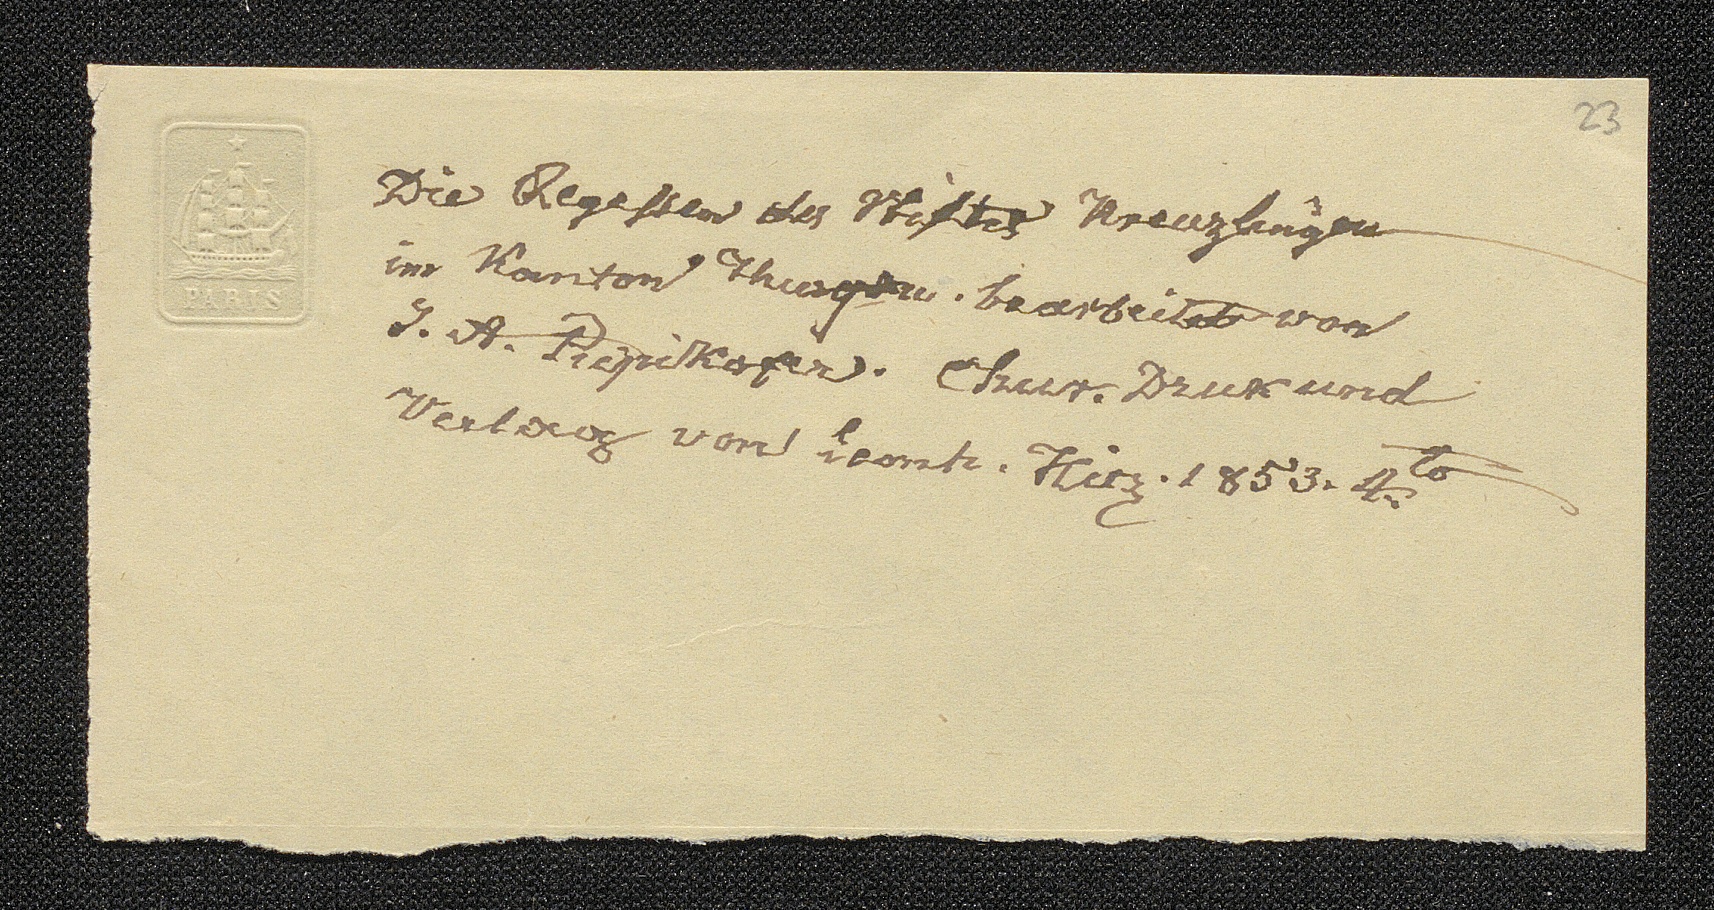 23
PARIS
Die Regesten des Stiftes Kreuzlingen
im Kanton Thurgau. bearbeitet von
J. A. Pupikofer. Chur. Druk und
Verlag von Leonh. Hitz. 1853. 4to